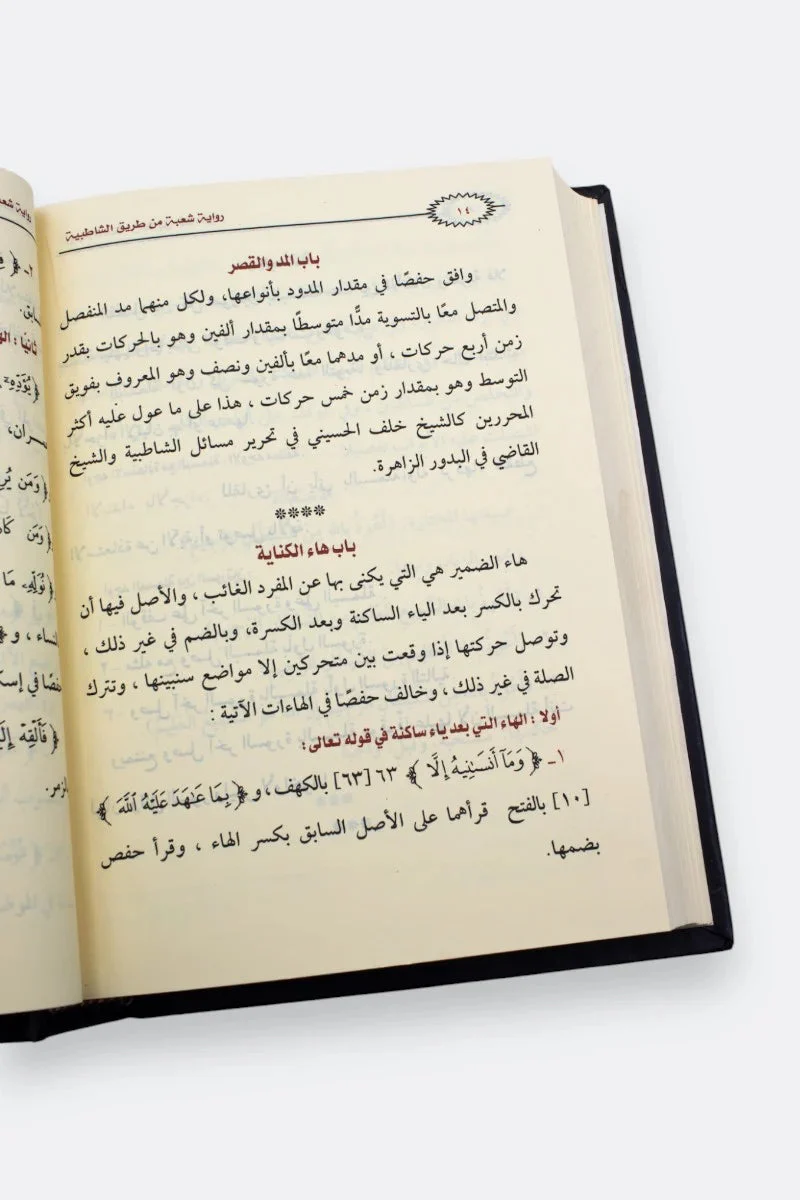 رواية شعبة من طريق الشاطبية
١٤
باب المد والقصر
وافق حفصًا في مقدار المدود بأنواعها، ولكل منهما مد المنفصل
والمتصل معًا بالتسوية مدًّا متوسطًا بمقدار ألفين وهو بالحركات بقدر
زمن أربع حركات ، أو مدهما معًا بألفين ونصف وهو المعروف بفويق
التوسط وهو بمقدار زمن خمس حركات ، هذا على ما عول عليه أكثر
المحررين كالشيخ خلف الحسيني في تحرير مسائل الشاطبية والشيخ
القاضي في البدور الزاهرة.
****
باب هاء الكناية
هاء الضمير هي التي يكنى بها عن المفرد الغائب ، والأصل فيها أن
تحرك بالكسر بعد الياء الساكنة وبعد الكسرة، وبالضم في غير ذلك ،
وتوصل حركتها إذا وقعت بين متحركين إلا مواضع سنبينها ، وتترك
الصلة في غير ذلك ، وخالف حفصًا في الهاءات الآتية :
أولا : الهاء التي بعد ياء ساكنة في قوله تعالى :
١- ﴿ وَمَآ أَنسَىٰنِيهُ إِلَّا ﴾ ٦٣ [٦٣] بالكهف، و ﴿ بِمَا عَٰهَدَ عَلَيْهُ ٱللَّهَ ﴾
[١٠] بالفتح قرأهما على الأصل السابق بكسر الهاء ، وقرأ حفص
بضمها.
رواية شعبة
٢- ﴿
سابق.
ثانيًا :
﴿ يُؤَدِّهِ
ـمران،
﴿ وَمَن
﴿ وَمَن
نُوَلِّهِ مَا
النساء ، و ﴿
حفصًا في
﴿ فَأَلْقِهْ
الزمر.